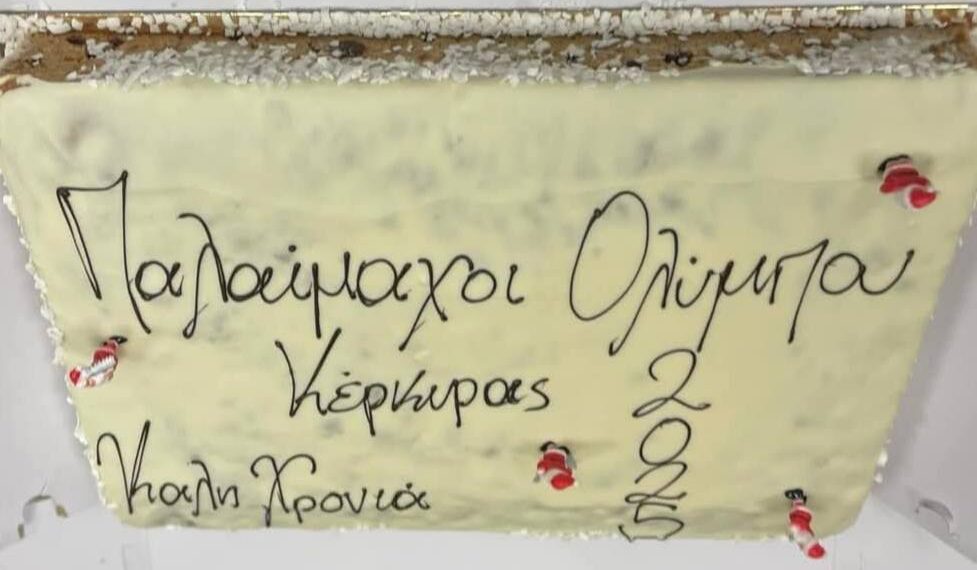 Παλαίμαχοι Ολύμπου
Κέρκυρας
Καλη Χρονιά
2
0
2
5